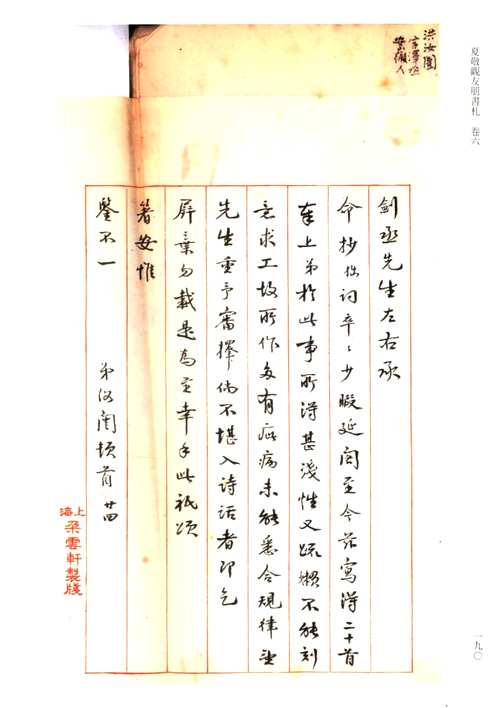 夏敬觀友朋書札 卷六
洪汝闓
字澤丞
安徽人
劍丞先生左右承
命抄拙詞卒卒少暇延閣至今茲寫得二十首
奉上弟於此事所得甚淺性又疏懶不能刻
意求工故所作多有疵病未能悉合規律望
先生重予審擇倘不堪入詩話者即乞
屏棄勿載是為至幸手此祗頌
箸安惟
鑒不一
弟汝闓頓首 廿四
上海
朵雲軒製牋
一九〇